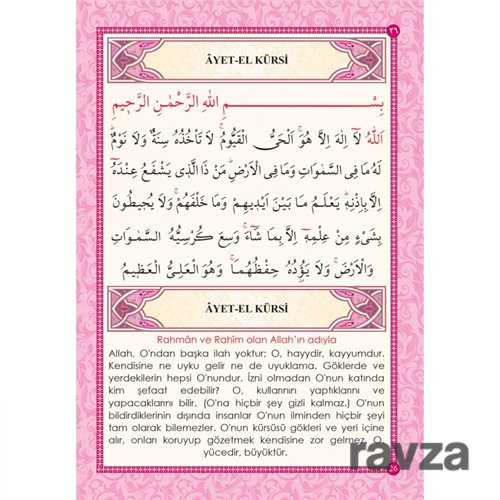 ٢٦
ÂYET-EL KÜRSİ
بِسْمِ اللهِ الرَّحْمٰنِ الرَّحِيمِ
اَللهُ لَٓا اِلٰهَ اِلَّا هُوَۚ اَلْحَيُّ الْقَيُّومُۚ لَا تَأْخُذُهُ سِنَةٌ وَلَا نَوْمٌۜ
لَهُ مَا فِي السَّمٰوَاتِ وَمَا فِي الْاَرْضِۜ مَنْ ذَا الَّذِي يَشْفَعُ عِنْدَهُٓ
اِلَّا بِاِذْنِهِۜ يَعْلَمُ مَا بَيْنَ اَيْدِيهِمْ وَمَا خَلْفَهُمْۚ وَلَا يُحِيطُونَ
بِشَيْءٍ مِنْ عِلْمِهِٓ اِلَّا بِمَا شَٓاءَۚ وَسِعَ كُرْسِيُّهُ السَّمٰوَاتِ
وَالْاَرْضَۚ وَلَا يَؤُدُهُ حِفْظُهُمَاۚ وَهُوَ الْعَلِيُّ الْعَظِيمُ
ÂYET-EL KÜRSİ
Rahmân ve Rahîm olan Allah'ın adıyla
Allah, O'ndan başka ilah yoktur; O, hayydir, kayyumdur.
Kendisine ne uyku gelir ne de uyuklama. Göklerde ve
yerdekilerin hepsi O'nundur. İzni olmadan O'nun katında
kim şefaat edebilir? O, kullarının yaptıklarını ve
yapacaklarını bilir. (O'na hiçbir şey gizli kalmaz.) O'nun
bildirdiklerinin dışında insanlar O'nun ilminden hiçbir şeyi
tam olarak bilemezler. O'nun kürsüsü gökleri ve yeri içine
alır, onları koruyup gözetmek kendisine zor gelmez. O,
yücedir, büyüktür.
ravza
26